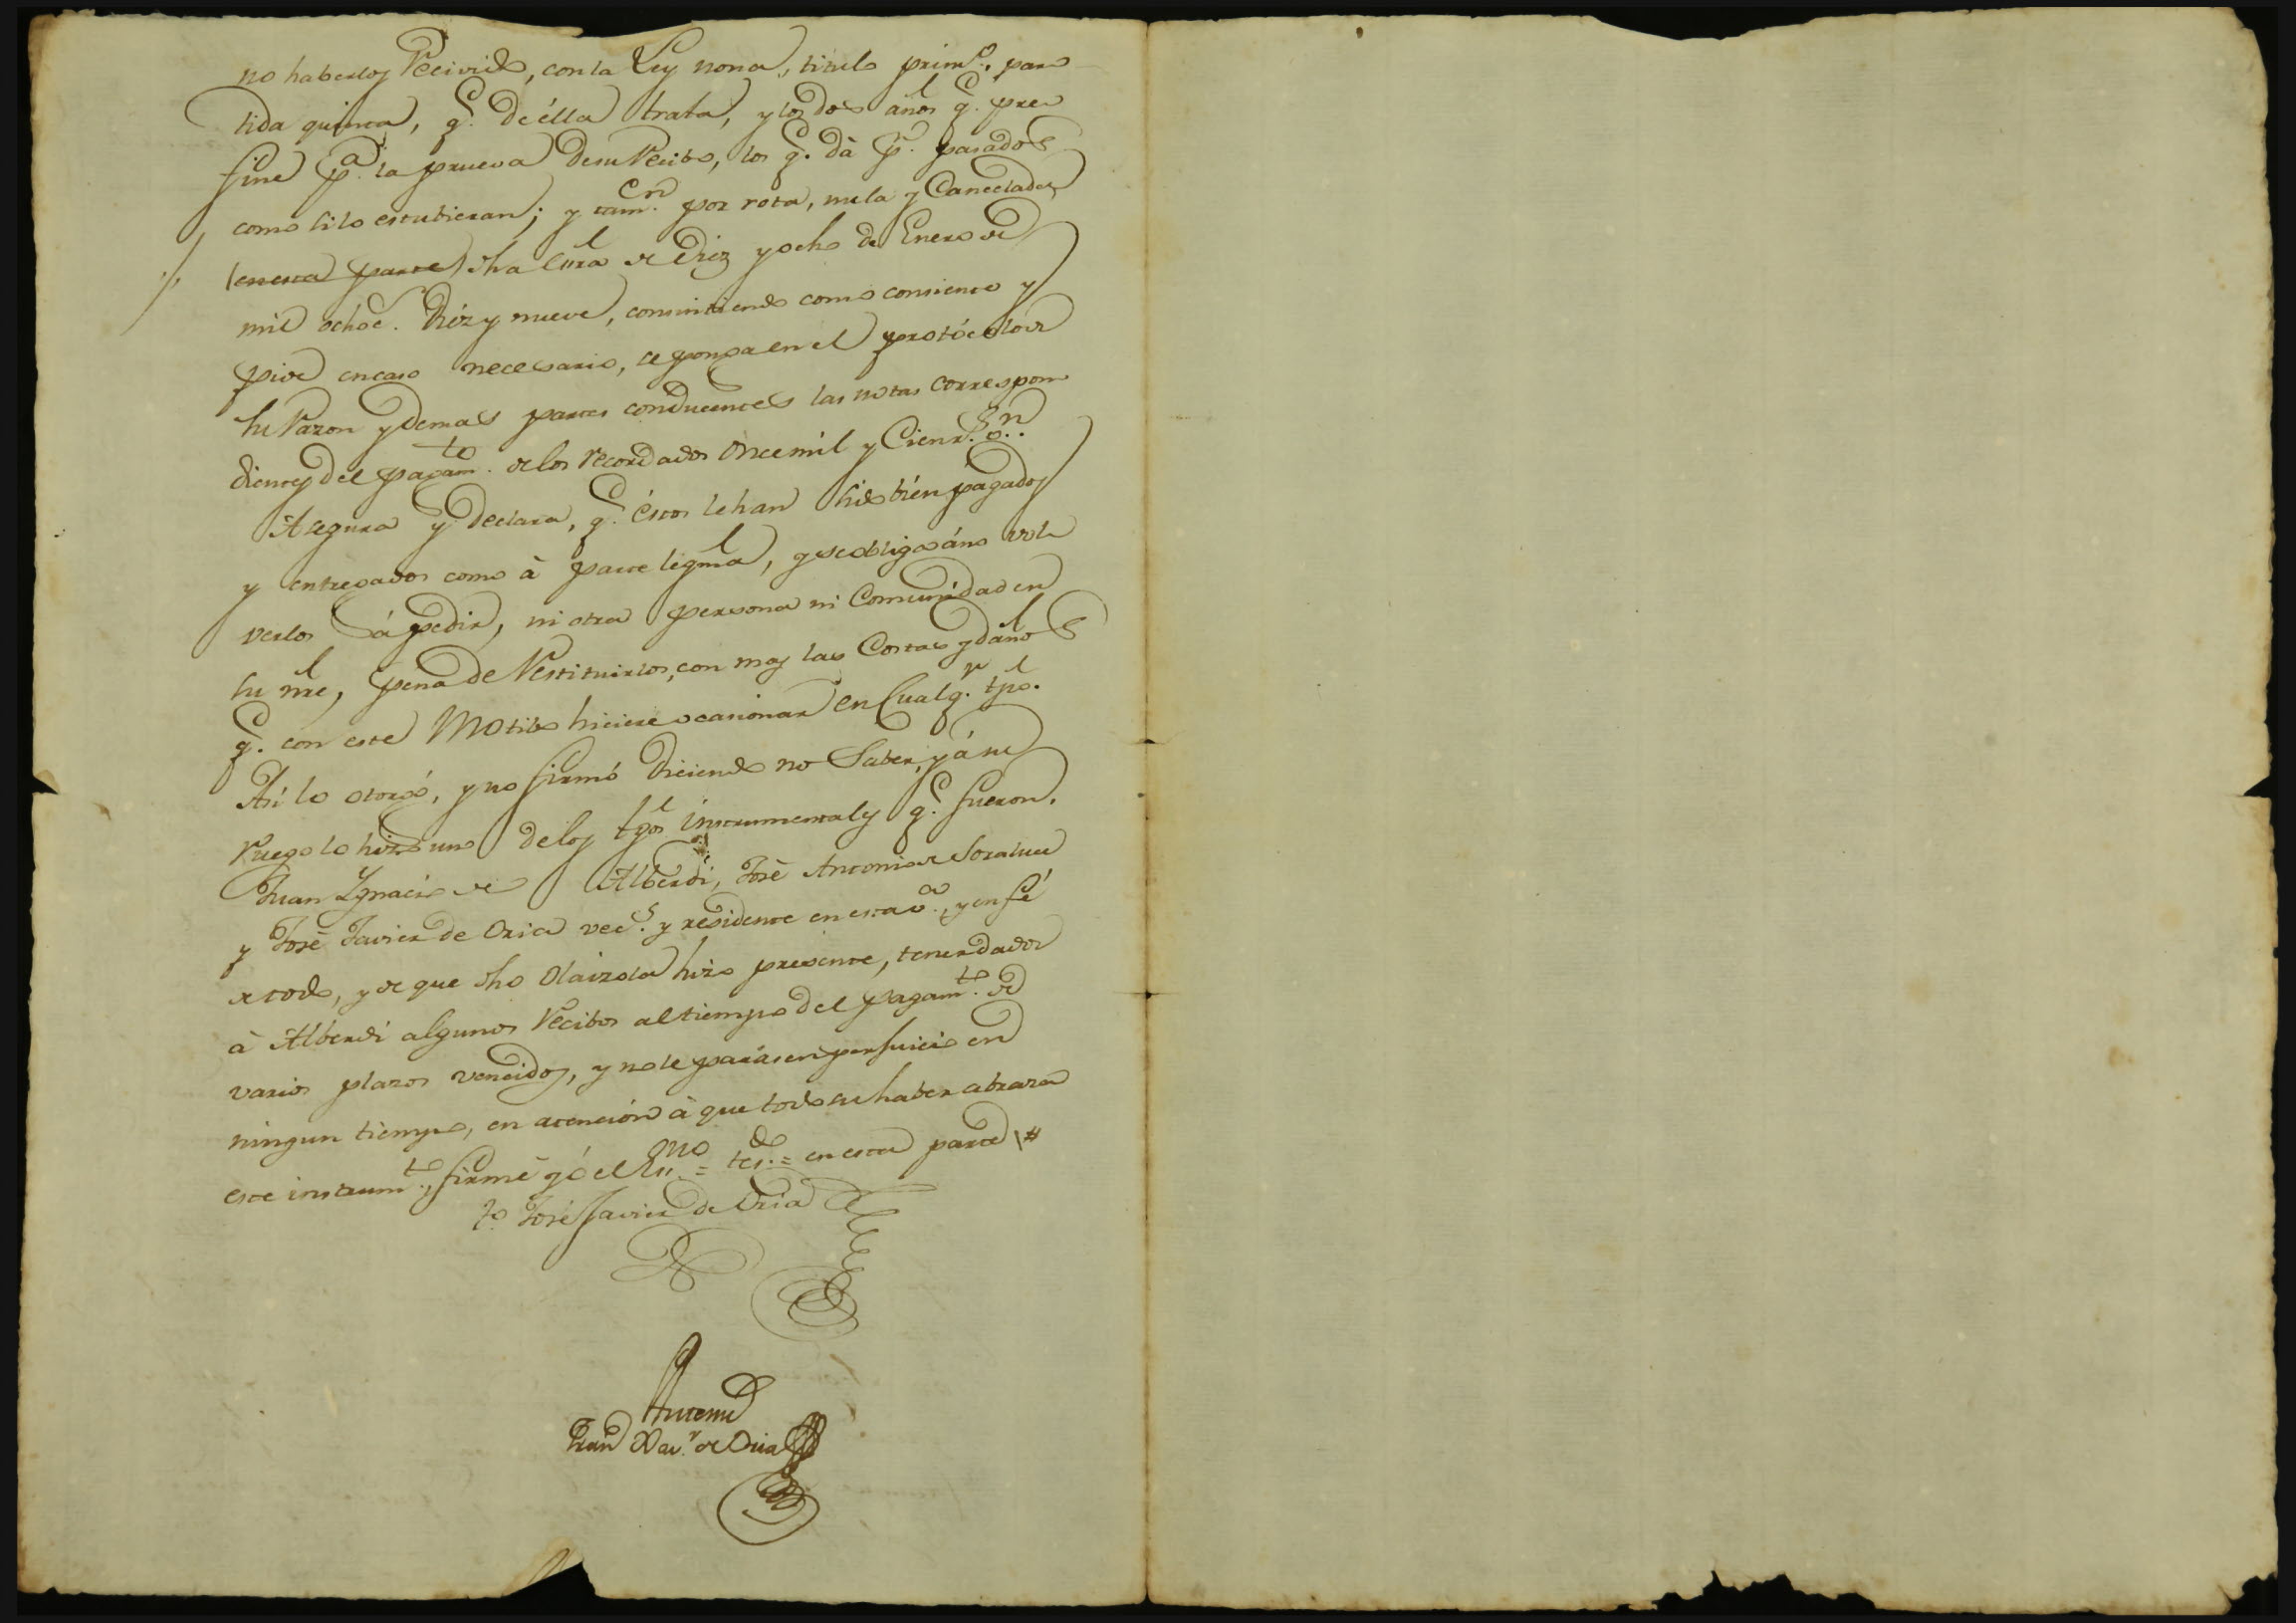 no haberlos Recivido, con la Ley nona, titulo prim.º, par
tida quinta, q.e de élla trata, y los dos años q.e pre
fine p.a la prueva de su Recibo, los q.e dà p.r pasados
como si lo estubieran; y tam.en por rota, nula y Cancelada
(en esta parte) dha Esra de diez y ocho de Enero de
mil ochoc.s diez y nueve, consintiendo como consiente y
pide en caso necesario, se ponga en el protócolo de
su Razon y demas partes conducentes las notas correspon
dientes del pagam.to de los recordados Once mil y Cien r.s v.n
Asegura y declara, q.e éstos le han sido bien pagados
y entregados como à parte legma, y se obliga áno vol
verlos á pedir, ni otra persona ni Comunidad en
su nre, pena de Restituirlos, con mas las Costas y daños
q.e con este Motibo hiciere ocasionar en Cualq.r tpo.
Asi lo otorgó, y no firmó diciendo no Saber, y á su
ruego lo hizo uno de los tgos instrumentales q.e fueron,
Juan Ignacio de Alberdi, José Antonio de Soraluce
y José Javier de Oria vec.s y residente en esta v.a, y en fé
de todo, y de que dho Olaizola hizo presente, tener dados
à Alberdi algunos Recibos al tiempo del pagam.to de
varios plazos vencidos, y no le parásen perjuicio en
ningun tiempo, en atención à que todo su haber abraza
este instrum.to, firmé yó el Es.no = tes.do = en esta parte \#
t.o José Javier de Oria
Antemi
Juan Xav.r de Oria